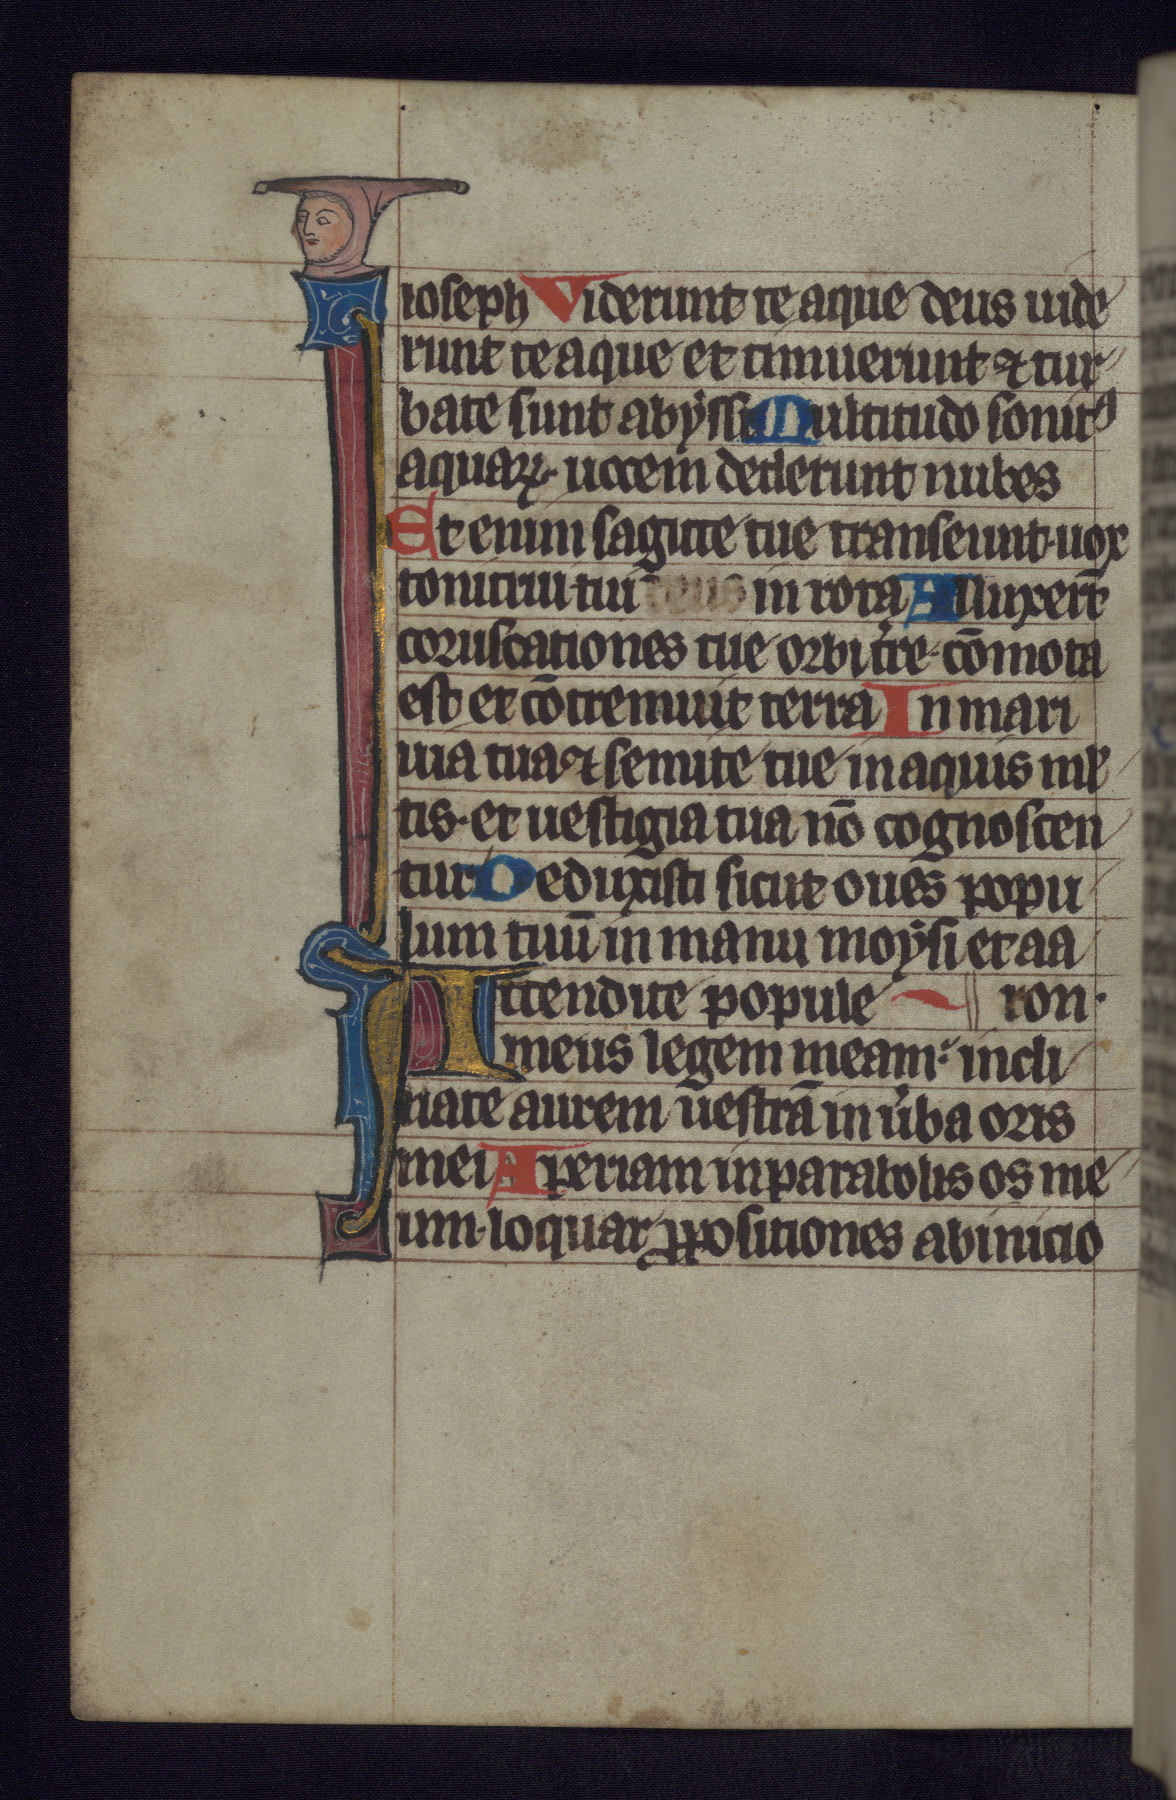 ioseph Viderunt te aque deus uide
runt te aque et timuerunt ⁊ tur
bate sunt abẏssi Multitudo sonitꝰ
aquaꝝ· uocem dederunt nubes
Et enim sagitte tue transeunt· uox
tonitrui tui deus in rota Alluxerūt
coruscationes tue orbi t̉re· cōmota
est et cōtremuit terra In mari
uia tua ⁊ semite tue in aquis ml
tis· et uestigia tua nō cognoscen
tur Deduxisti sicut oues popu
lum tuū in manu moẏsi et aa
ron·
Attendite popule
meus legem meam: incli
nate aurem uestrā in u̓ba oris
mei Aperiam in parabolis os me
um· loquar ꝓpositiones ab inicio